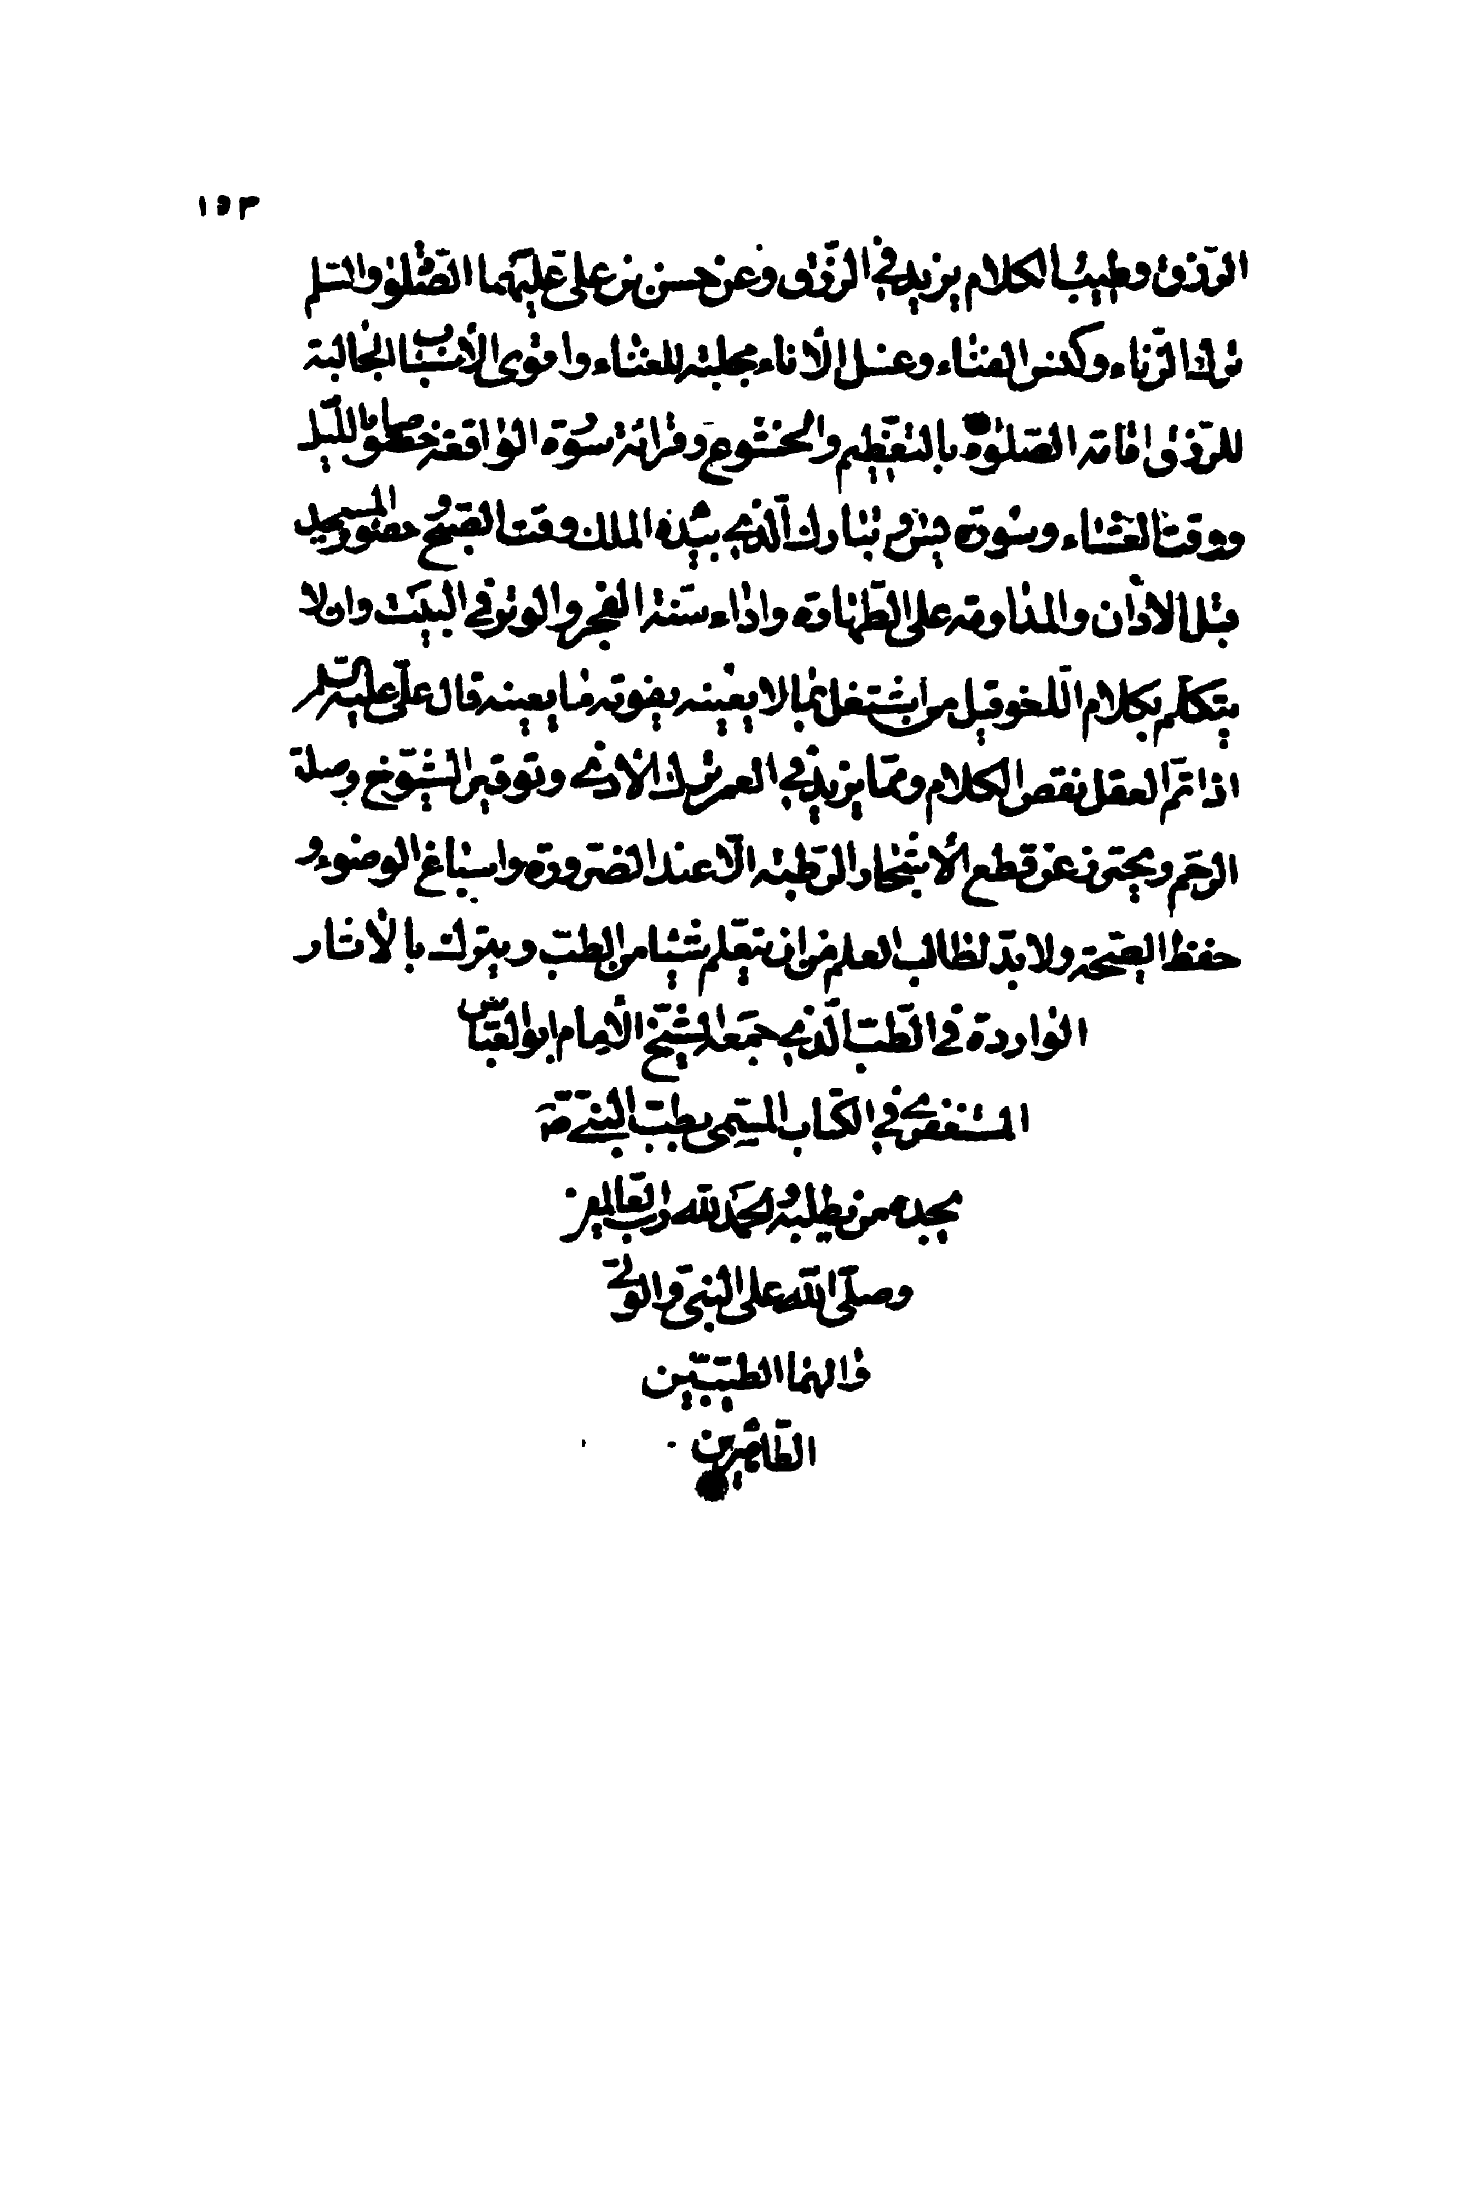 ١٥٣
الرزق وطيب الكلام يزيد في الرزق وعن حسن بن علي عليهما الصلوة والسلم
ترك الزناء وكنس الفناء وغسل الاناء مجلبة للغناء واقوى الأسباب الجالبة
للرزق اقامة الصلوة بالتعظيم والخشوع وقرائة سورة الواقعة خصوصا بالليل
ووقت العشاء وسورة يس و تبارك الذي بيده الملك وقت الصبح وحضور المسجد
قبل الاذان والمداومة على الطهارة واداء سنة الفجر والوتر في البيت وان لا
يتكلم بكلام اللغو قيل من اشتغل بما لا يعنيه يفوته ما يعنيه قال علي عليه السلم
اذا تم العقل نقص الكلام ومما يزيد في العمر ترك الاذى وتوقير الشيوخ وصلة
الرحم ويحترز عن قطع الأشجار الرطبة الا عند الضرورة واسباغ الوضوء و
حفظ الصحة ولا بد لطالب العلم من ان يتعلم شيئا من الطب ويتبرك بالاثار
الواردة في الطب الذي جمعه الشيخ الأمام ابو العباس
المستغفري في الكتاب المسمى بطب النبي ص
يجده من يطلبه والحمد لله رب العالمين
وصلى الله على النبي والولي
والهما الطيبين
الطاهرين